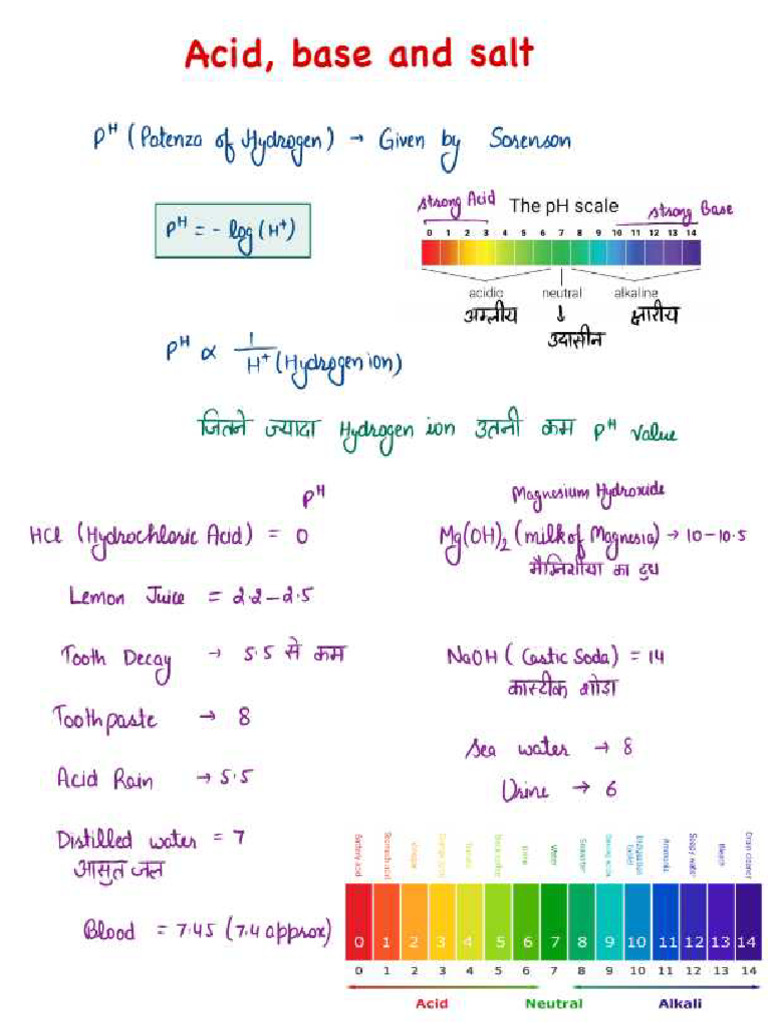 Acid, base and salt
pH (Potenza of Hydrogen) → Given by Sosenson
pH = - log (H+)
strong Acid
The pH scale
strong Base
0 1 2 3 4 5 6 7 8 9 10 11 12 13 14
acidic neutral alkaline
अम्लीय ↓ क्षारीय
उदासीन
pH ∝ 1/H+ (Hydrogen ion)
जितने ज्यादा Hydrogen ion उतनी कम pH value
pH
HCl (Hydrochloric Acid) = 0
Lemon Juice = 2.2-2.5
Tooth Decay → 5.5 से कम
Toothpaste → 8
Acid Rain → 5.5
Distilled water = 7
आसुत जल
Blood = 7.45 (7.4 approx)
Magnesium Hydroxide
Mg(OH)2 (milk of Magnesia) → 10-10.5
मैग्निशीया का दुध
NaOH (Castic Soda) = 14
कास्टीक शोडा
Sea water → 8
Urine → 6
Battery acid
Stomach acid
Water
Seawater
Ammonia
Soapy water
Bleach
Drain cleaner
0 1 2 3 4 5 6 7 8 9 10 11 12 13 14
0 1 2 3 4 5 6 7 8 9 10 11 12 13 14
Acid Neutral Alkali